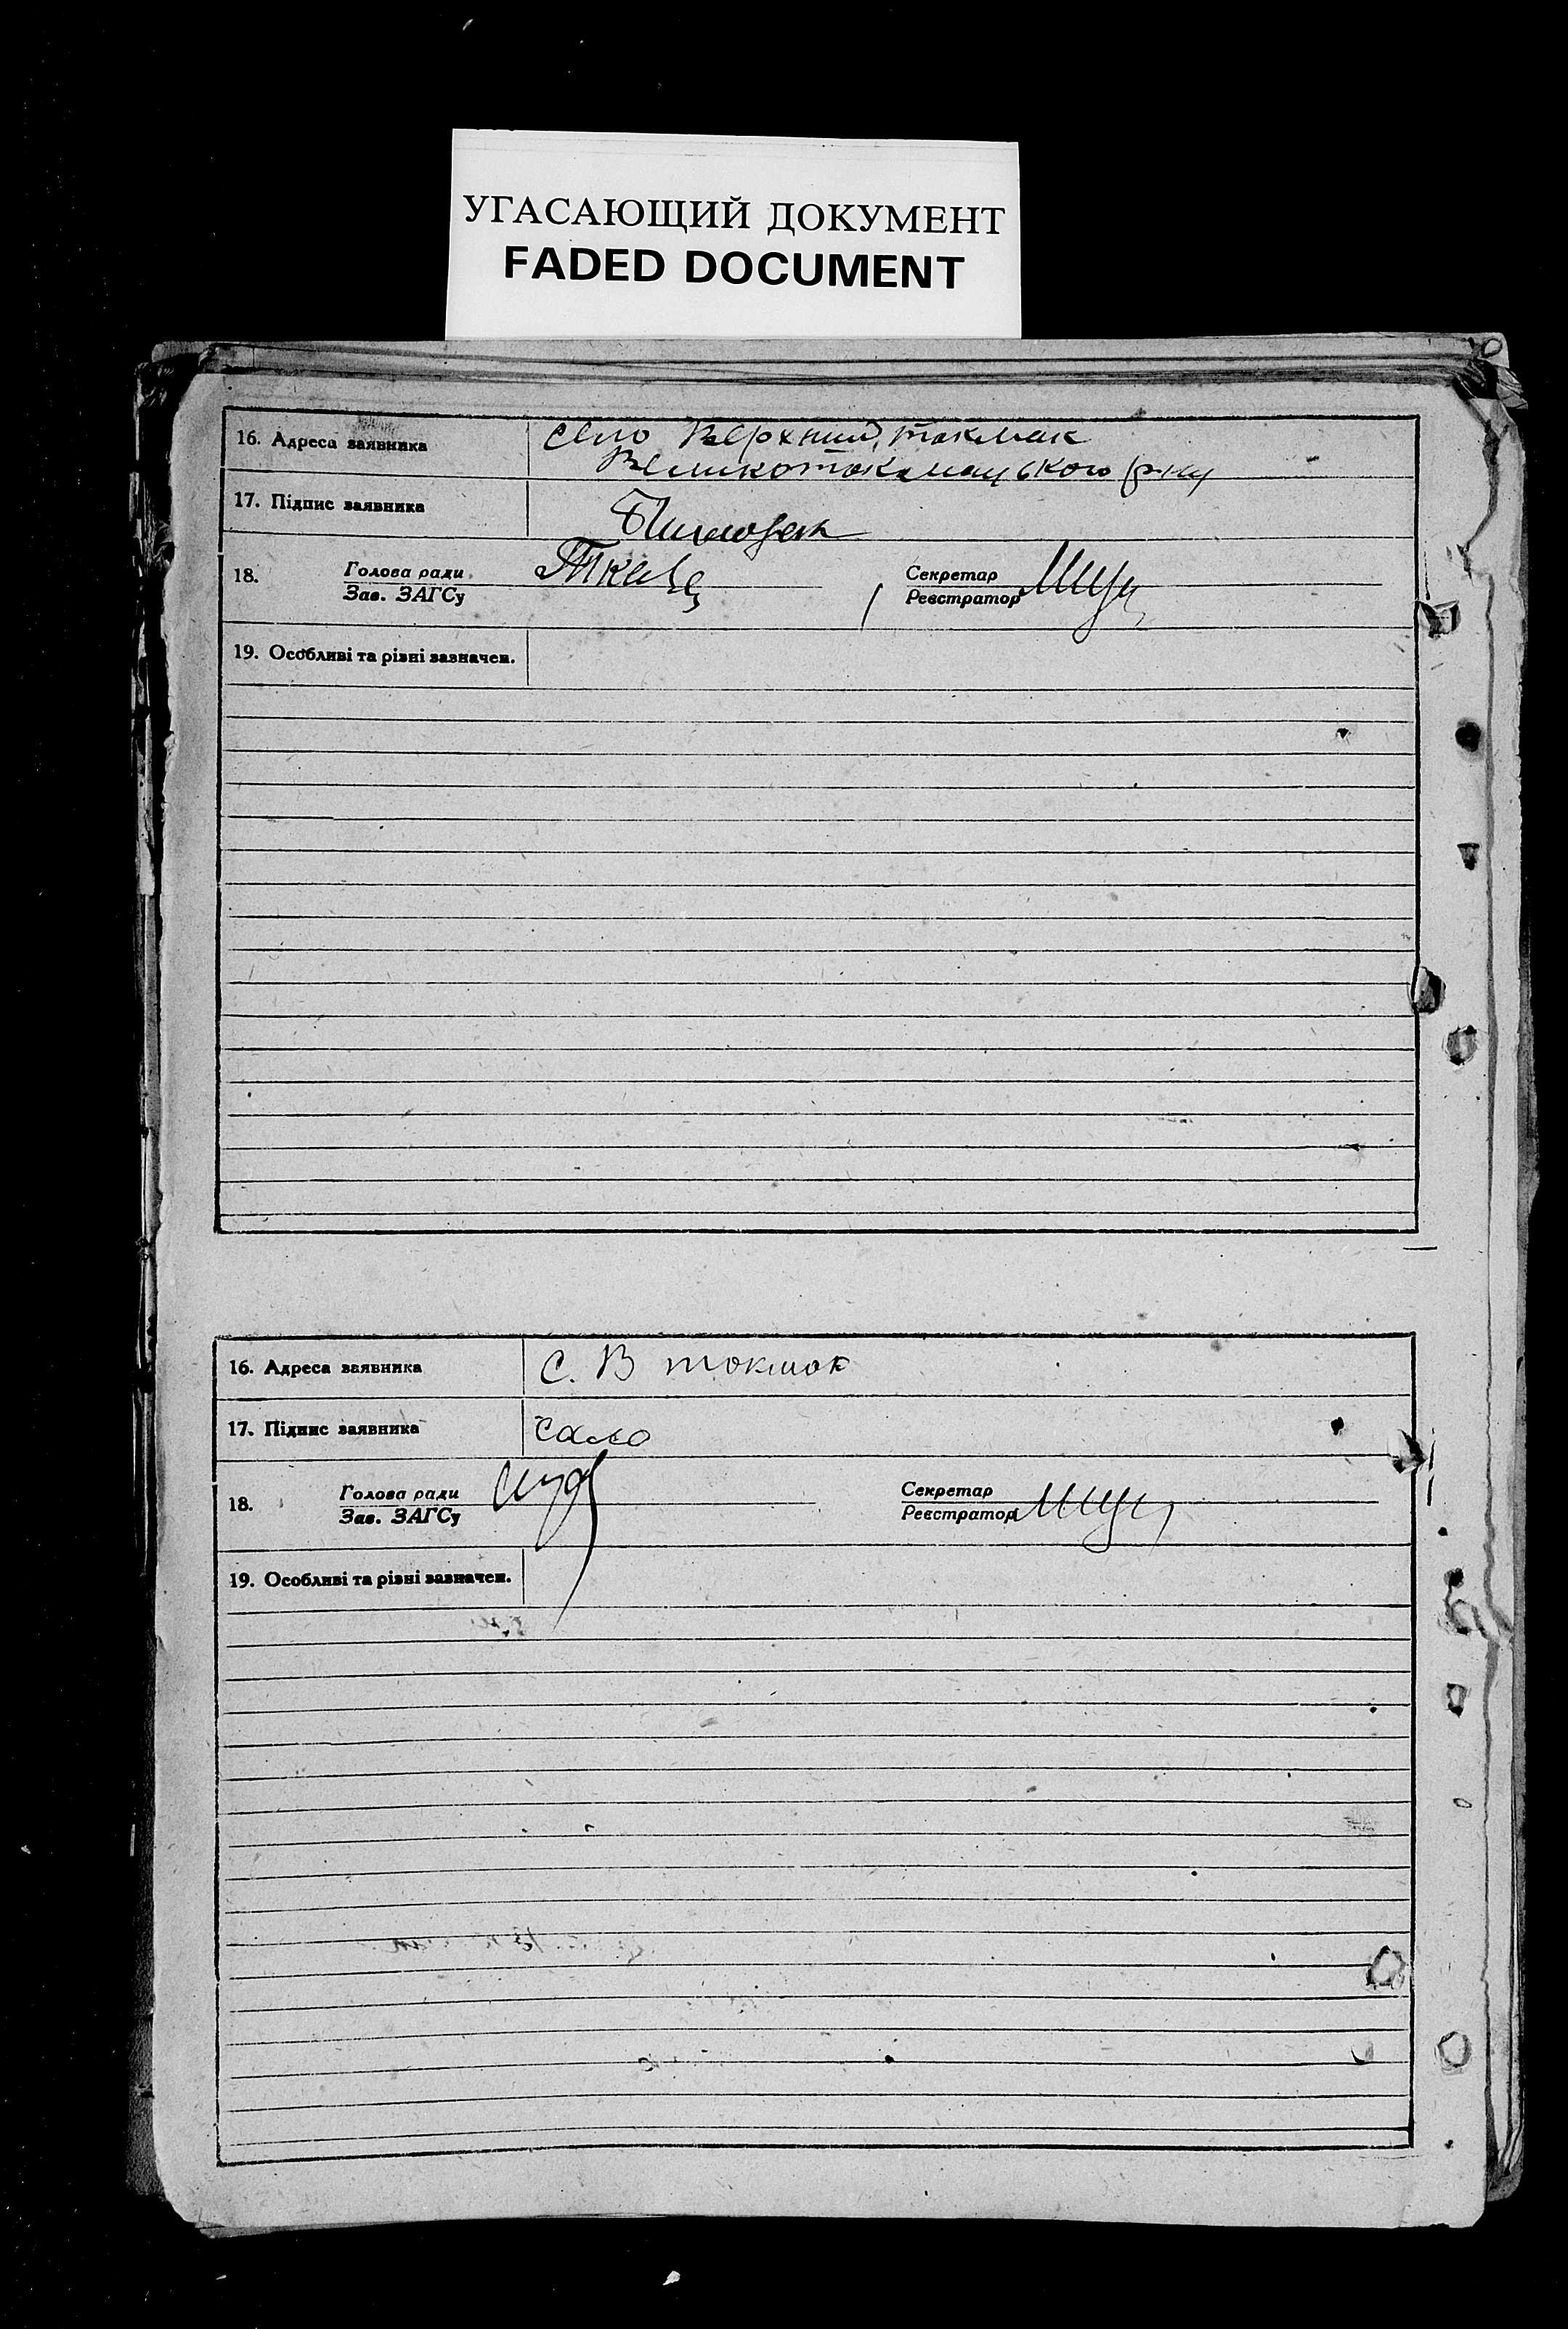 УГАСАЮЩИЙ ДОКУМЕНТ
FADED DOCUMENT
16. Адреса заявника село Верхний токмак
Великотокмацького р-ну
17. Підпис заявника
18. Голова ради Секретар
Зав. ЗАГСу Реєстратор
19. Особливі та різні зазначен.
16. Адреса заявника с. В токмак
17. Підпис заявника Сало
18. Голова ради Секретар
Зав. ЗАГСу Реєстратор
19. Особливі та різні зазначен.